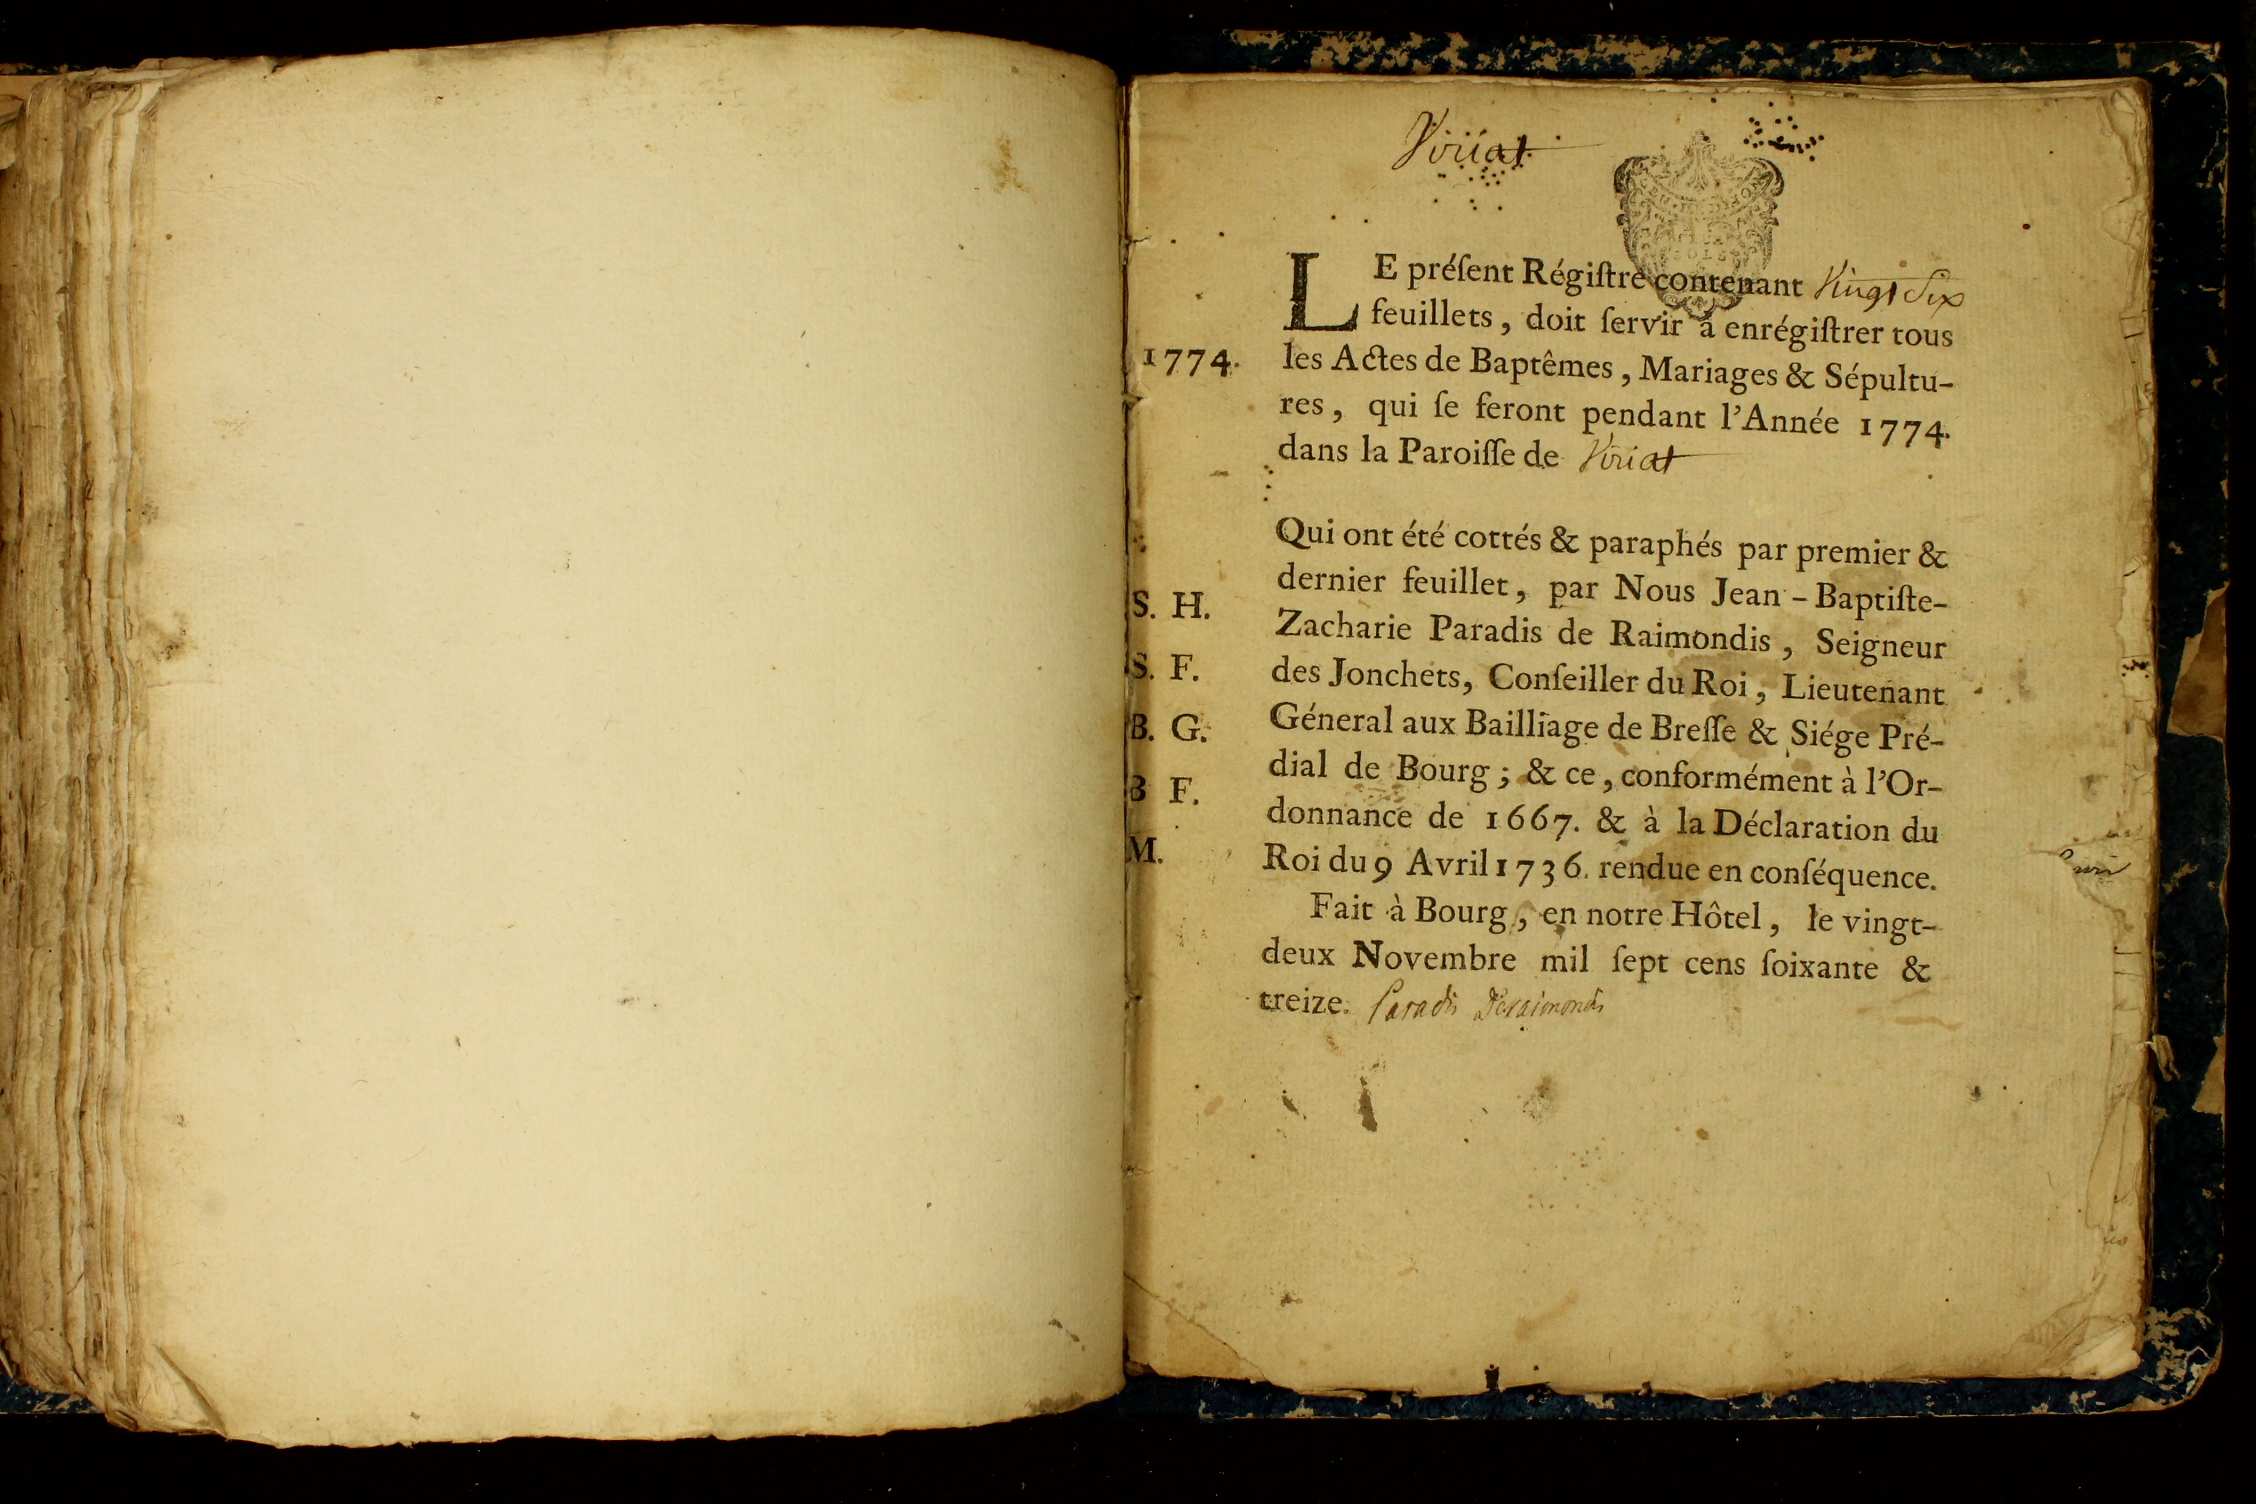 Viriat
LE préſent Régiſtre contenant Vingt Six
feuillets, doit ſervir à enrégiſtrer tous
1774. les Actes de Baptêmes, Mariages & Sépultu-
res, qui ſe feront pendant l'Année 1774.
dans la Paroiſſe de Viriat
Qui ont été cottés & paraphés par premier &
dernier feuillet, par Nous Jean-Baptiſte-
S. H. Zacharie Paradis de Raimondis, Seigneur
S. F. des Jonchets, Conſeiller du Roi, Lieutenant
B. G. Géneral aux Bailliage de Breſſe & Siége Pré-
B F. dial de Bourg; & ce, conformément à l'Or-
donnance de 1667. & à la Déclaration du
M. Roi du 9 Avril 1736. rendue en conſéquence.
Fait à Bourg, en notre Hôtel, le vingt-
deux Novembre mil ſept cens ſoixante &
treize. Paradis Deraimondis